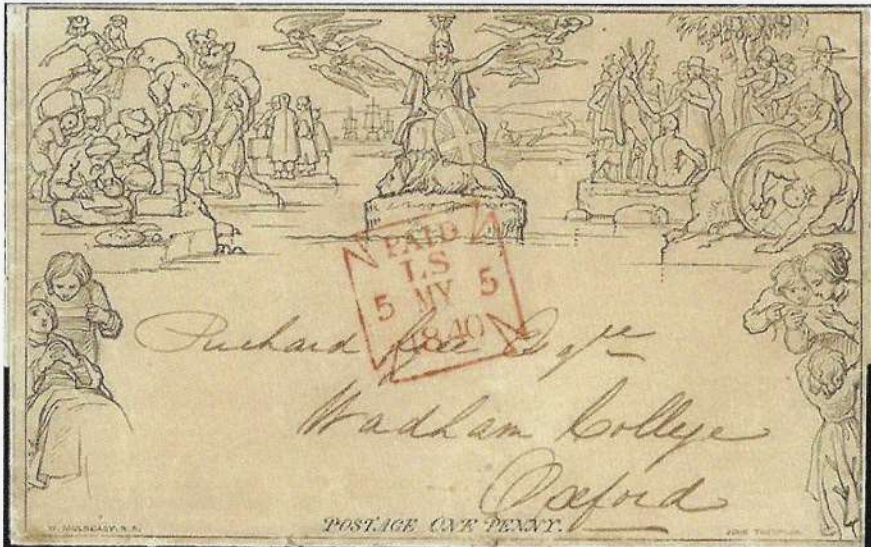 PAID
L.S
5 MY 5
1840
Richard Esqre
Wadham College
Oxford
W. MULREADY. R.A.
POSTAGE ONE PENNY.
JOHN THOMPSON